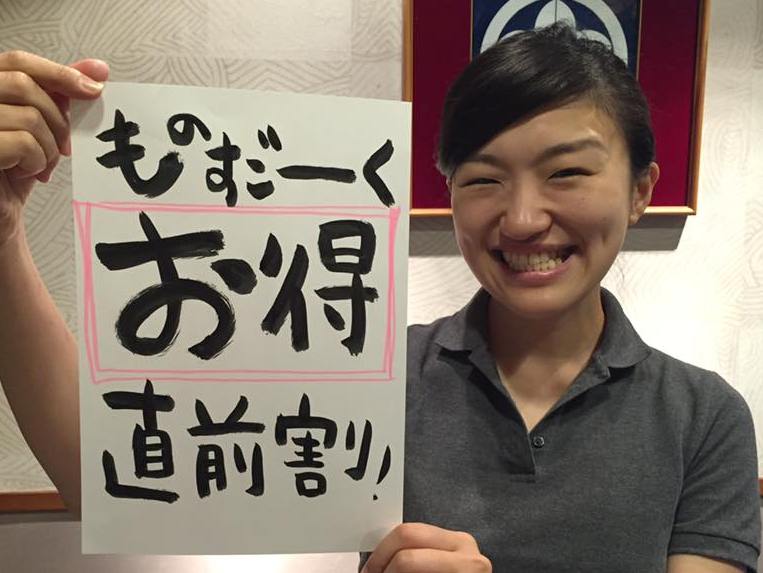 ものすごーく
お得
直前割!